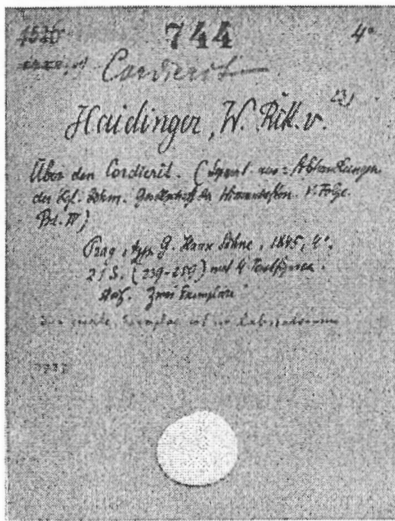 4526 744 4°
Cordierit
Haidinger, W. Ritt. v.
Über den Cordierit. (Separat. aus: Abhandlungen
der kgl. böhm. Gesellschaft der Wissenschaften. V. Folge.
Bd. IV)
Prag, typ. G. Haase Söhne, 1845, 4°.
21 S. (239-259) mit 4 Textfiguren.
Zwei Exemplare
Exemplar ist im Laboratorium